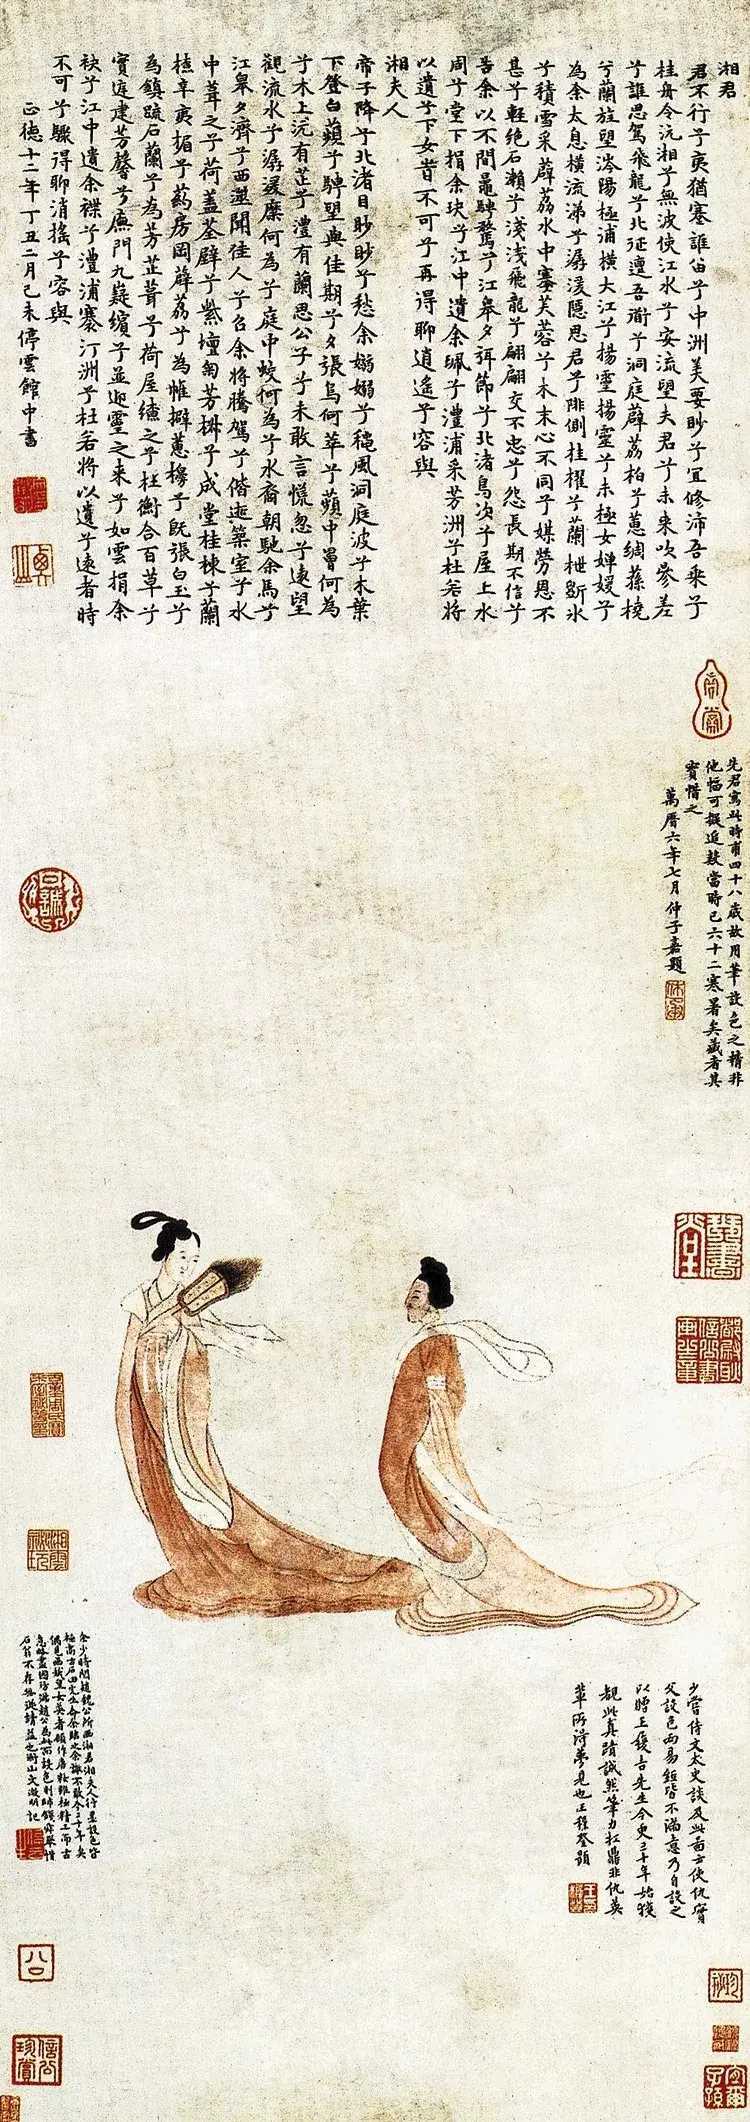 湘君
君不行兮夷猶蹇誰留兮中洲美要眇兮宜修沛吾乘兮
桂舟令沅湘兮無波使江水兮安流望夫君兮未來吹參差
兮誰思駕飛龍兮北征邅吾道兮洞庭薜荔柏兮蕙綢蓀橈
兮蘭旌望涔陽極浦橫大江兮揚靈揚靈兮未極女嬋媛兮
為余太息橫流涕兮潺湲隱思君兮陫側桂櫂兮蘭枻斲冰
兮積雪采薜荔水中搴芙蓉兮木末心不同兮媒勞恩不
甚兮輕絕石瀨兮淺淺飛龍兮翩翩交不忠兮怨長期不信兮
告余以不間鼂騁騖兮江皋夕弭節兮北渚鳥次兮屋上水
周兮堂下捐余玦兮江中遺余珮兮澧浦采芳洲兮杜若將
以遺兮下女旹不可兮再得聊逍遙兮容與
湘夫人
帝子降兮北渚目眇眇兮愁余嫋嫋兮穐風洞庭波兮木葉
下登白薠兮騁望與佳期兮夕張鳥何萃兮蘋中罾何為
兮木上沅有芷兮澧有蘭思公子兮未敢言慌忽兮遠望
觀流水兮潺湲麋何為兮庭中蛟何為兮水裔朝馳余馬兮
江皋夕濟兮西澨聞佳人兮召余將騰駕兮偕逝築室兮水
中葺之兮荷蓋荃壁兮紫壇匊芳椒兮成堂桂棟兮蘭
橑辛夷楣兮葯房罔薜荔兮為帷擗蕙櫋兮既張白玉兮
為鎮疏石蘭兮為芳芷葺兮荷屋繚之兮杜衡合百草兮
實庭建芳馨兮廡門九嶷繽兮並迎靈之來兮如雲捐余
袂兮江中遺余褋兮澧浦搴汀洲兮杜若將以遺兮遠者時
不可兮驟得聊消搖兮容與
正德十二年丁丑二月己未停雲館中書
先君寫此時甫四十八歲故用筆設色之精非
他幅可擬追數當時已六十二寒暑矣藏者其
寶惜之
萬曆六年七月仲子嘉題
少嘗侍文太史談及此圖云使仇實
父設色兩易紙皆不滿意乃自設之
以贈王履吉先生今更三十年始獲
覩此真蹟誠然筆力扛鼎非仇英
輩所得夢見也王穉登題
余少時閱趙魏公所畫湘君湘夫人行墨設色皆
極高古石田先生命余臨之余謝不敢今二十年矣
偶見畫娥皇女英者顧作唐粧雖極精工而古
意略盡因彷彿趙公為此而設色則師錢舜舉惜
石翁不存無從請益也衡山文徵明記
八公
信公珍賞
宜爾子孫
琴書堂